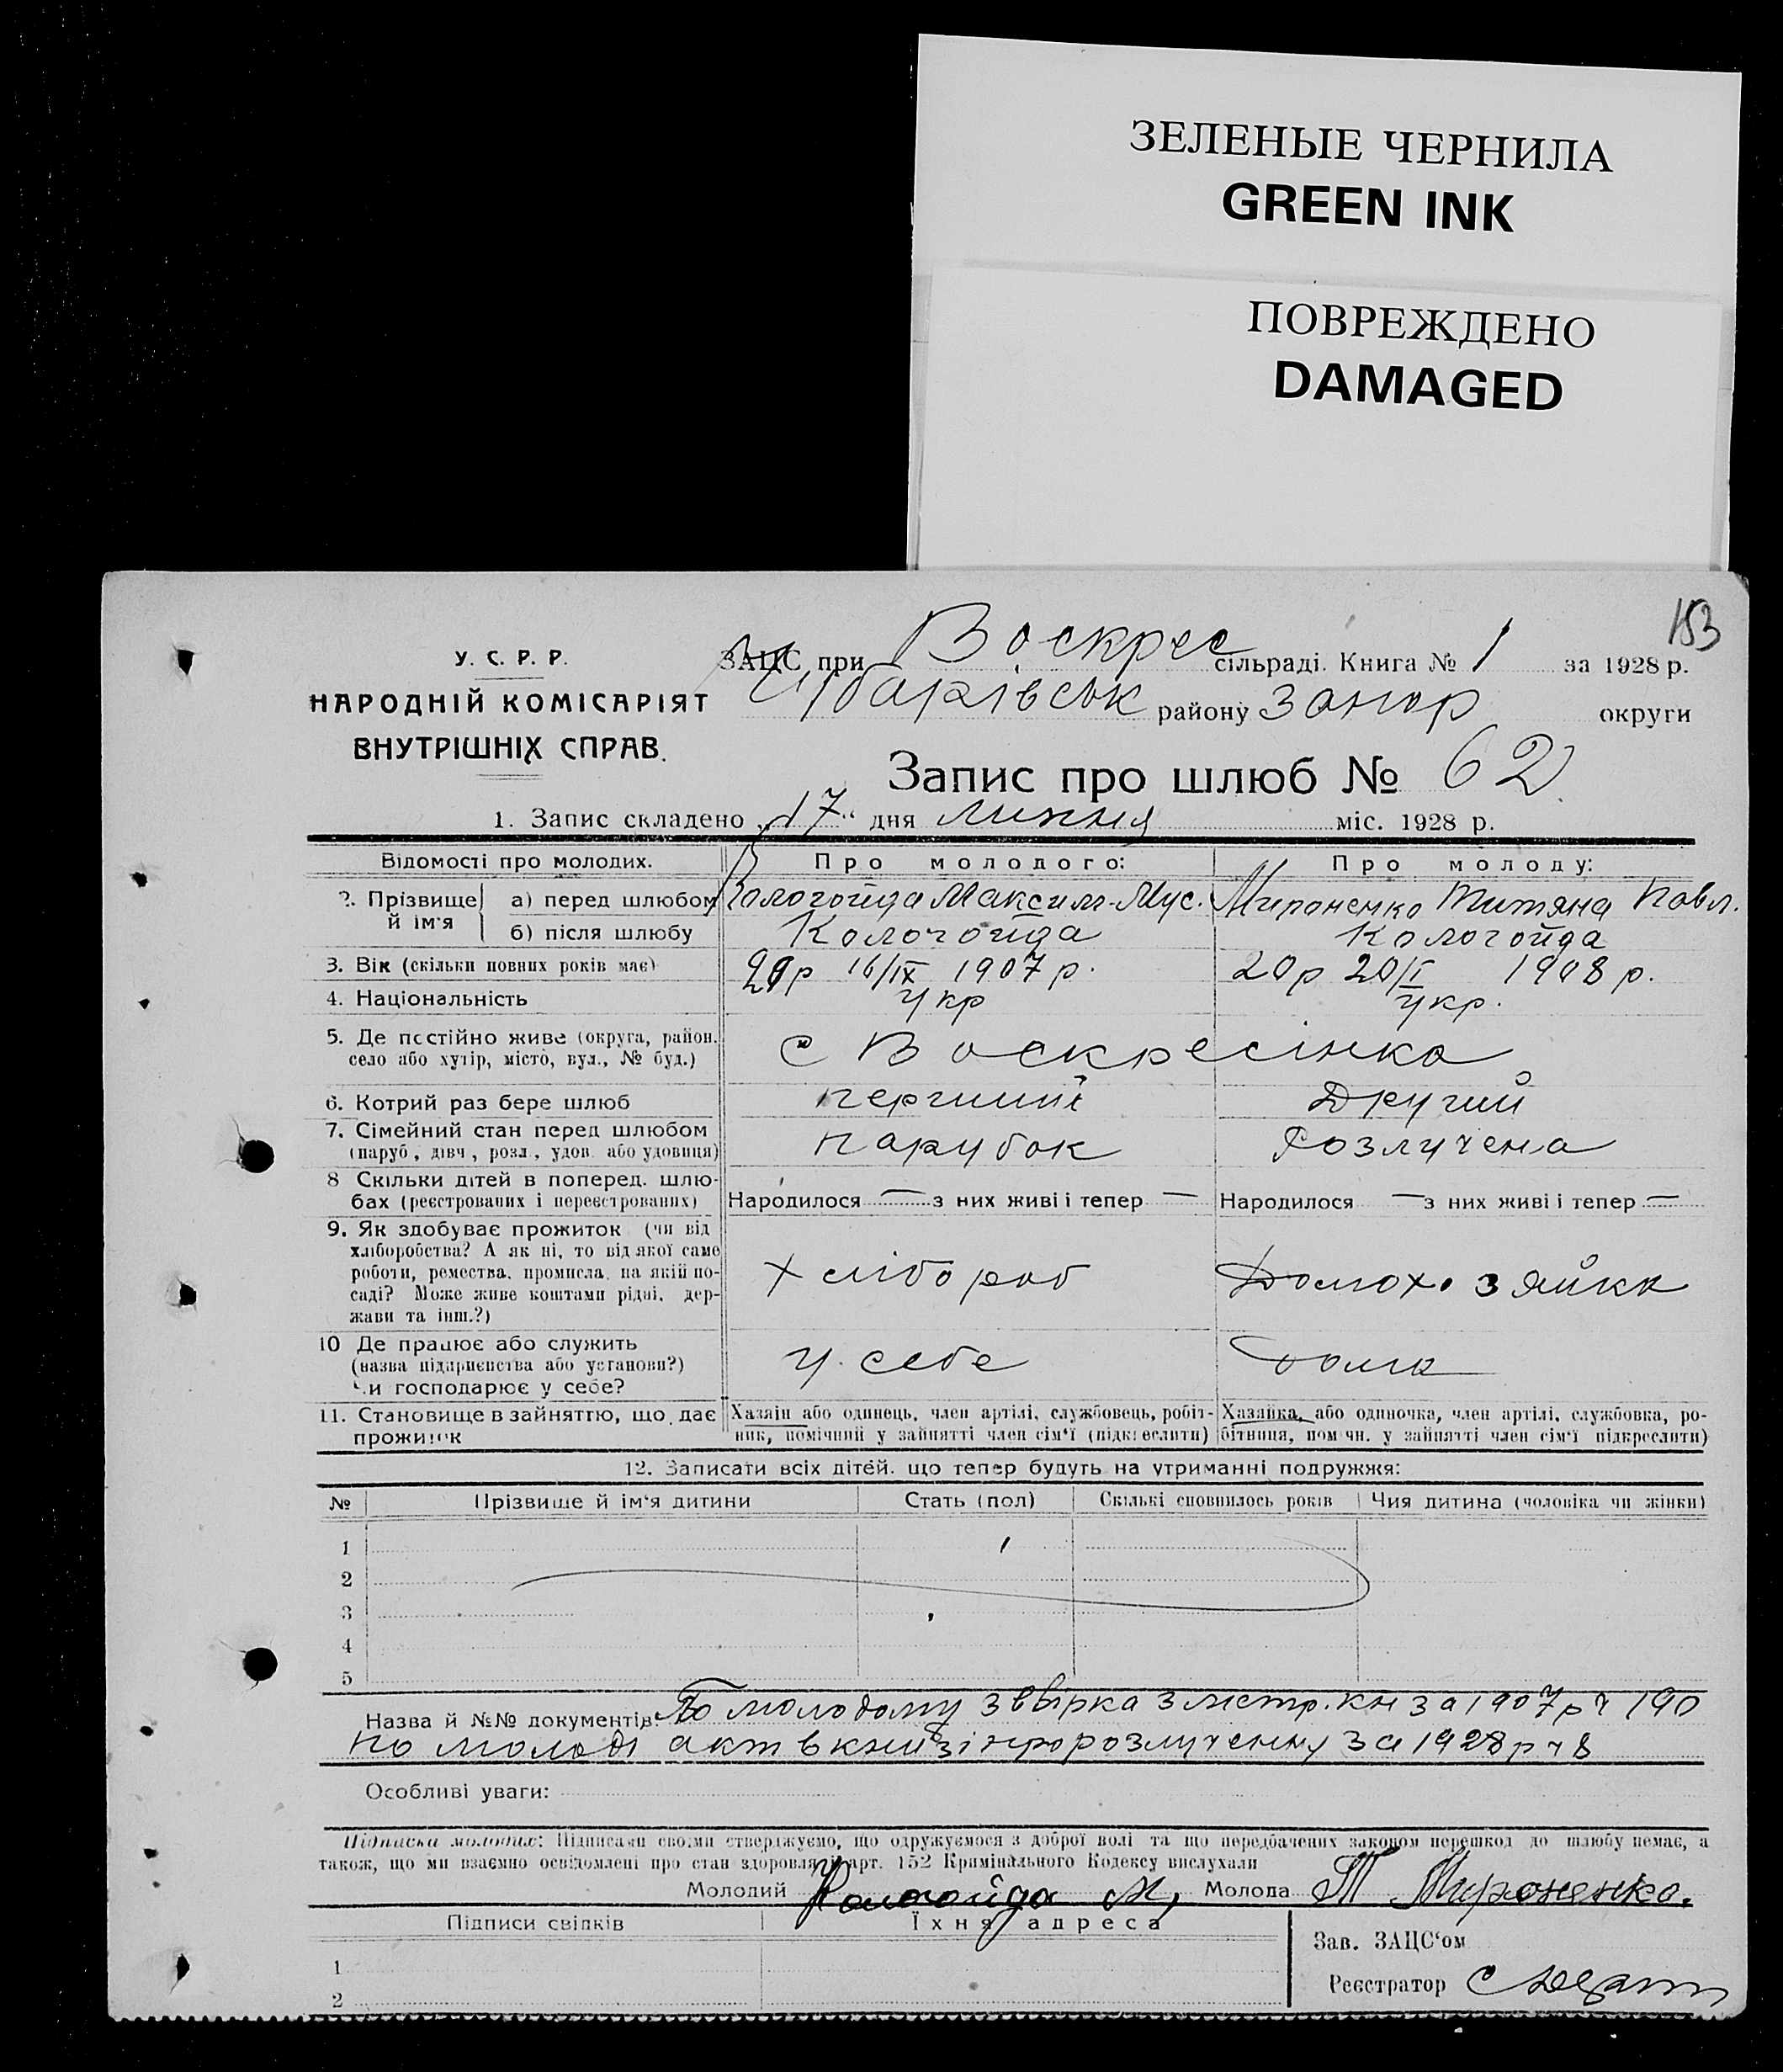 ЗЕЛЕНЫЕ ЧЕРНИЛА
GREEN INK
ПОВРЕЖДЕНО
DAMAGED
153
У. С. Р. Р.
НАРОДНІЙ КОМІСАРІЯТ
ВНУТРІШНІХ СПРАВ.
ЗАЦС при Воскрес сільраді. Книга № 1 за 1928 р.
Чубарівськ району Запор округи
Запис про шлюб № 62
1. Запис складено „17“ дня липня міс. 1928 р.
Відомості про молодих. Про молодого: Про молоду:
2. Прізвище й ім'я а) перед шлюбом Кологойда Максим Мус. Мироненко Титяна Павл.
б) після шлюбу Кологойда Кологойда
3. Вік (скільки повних років має) 16/IX 1907 р. 20 р 20/I 1908 р.
4. Національність Укр Укр.
5. Де постійно живе (округа, район,
село або хутір, місто, вул., № буд.) с Воскресінка
6. Котрий раз бере шлюб перший Другий
7. Сімейний стан перед шлюбом
(паруб, дівч, розл., удов. або удовиця) парубок Розлучена
8 Скільки дітей в поперед. шлю-
бах (реєстрованих і нереєстрованих) Народилося — з них живі і тепер — Народилося — з них живі і тепер —
9. Як здобуває прожиток (чи від
хліборобства? А як ні, то від якої саме
роботи, ремества, промисла, на якій по-
саді? Може живе коштами рідні, дер-
жави та інш.?) Хлібороб Домохозяйка
10 Де працює або служить
(назва підприємства або установи?)
Чи господарює у себе? У себе дома
11. Становище в зайняттю, що дає
прожиток
Хазяїн або одинець, член артілі, службовець, робіт-
ник, помічний у зайнятті член сім'ї (підкреслити)
Хазяйка, або одиночка, член артілі, службовка, ро-
бітниця, пом чн. у зайнятті член сім'ї підкреслити)
12. Записати всіх дітей, що тепер будуть на утриманні подружжя:
№ Прізвище й ім'я дитини Стать (пол) Скількі сповнилось років Чия дитина (чоловіка чи жінки)
1
2
3
4
5
Назва й №№ документів: По молодому звірка з метр. кн за 1907 р ч 190
по молоді акт в книзі про розлученну за 1928 р ч 8
Особливі уваги:
Підписка молодих: Підписами своїми стверджуємо, що одружуємося з доброї волі та що передбачених законом перешкод до шлюбу немає, а
також, що ми взаємно освідомлені про стан здоровля й арт. 152 Кримінального Кодексу вислухали
Молодий Кологойда М, Молода Т Мироненко.
Підписи свідків Їхня адреса
1
2
Зав. ЗАЦС'ом
Реєстратор